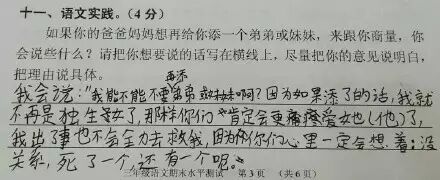 十一、语文实践。(4分)
如果你的爸爸妈妈想再给你添一个弟弟或妹妹，来跟你商量，你
会说些什么？请把你想要说的话写在横线上，尽量把你的意见说明白，
把理由说具体。
再添
我会说："我能不能不要弟弟或妹妹啊？因为如果添了的话，我就
不再是独生子女了，那样你们"肯定会更疼爱女也(他)了，
我出了事也不会全力去救我，因为你们心里一定会想着：没
关系，死了一个，还有一个呢。"
三年级语文期末水平测试 第3页 (共6页)